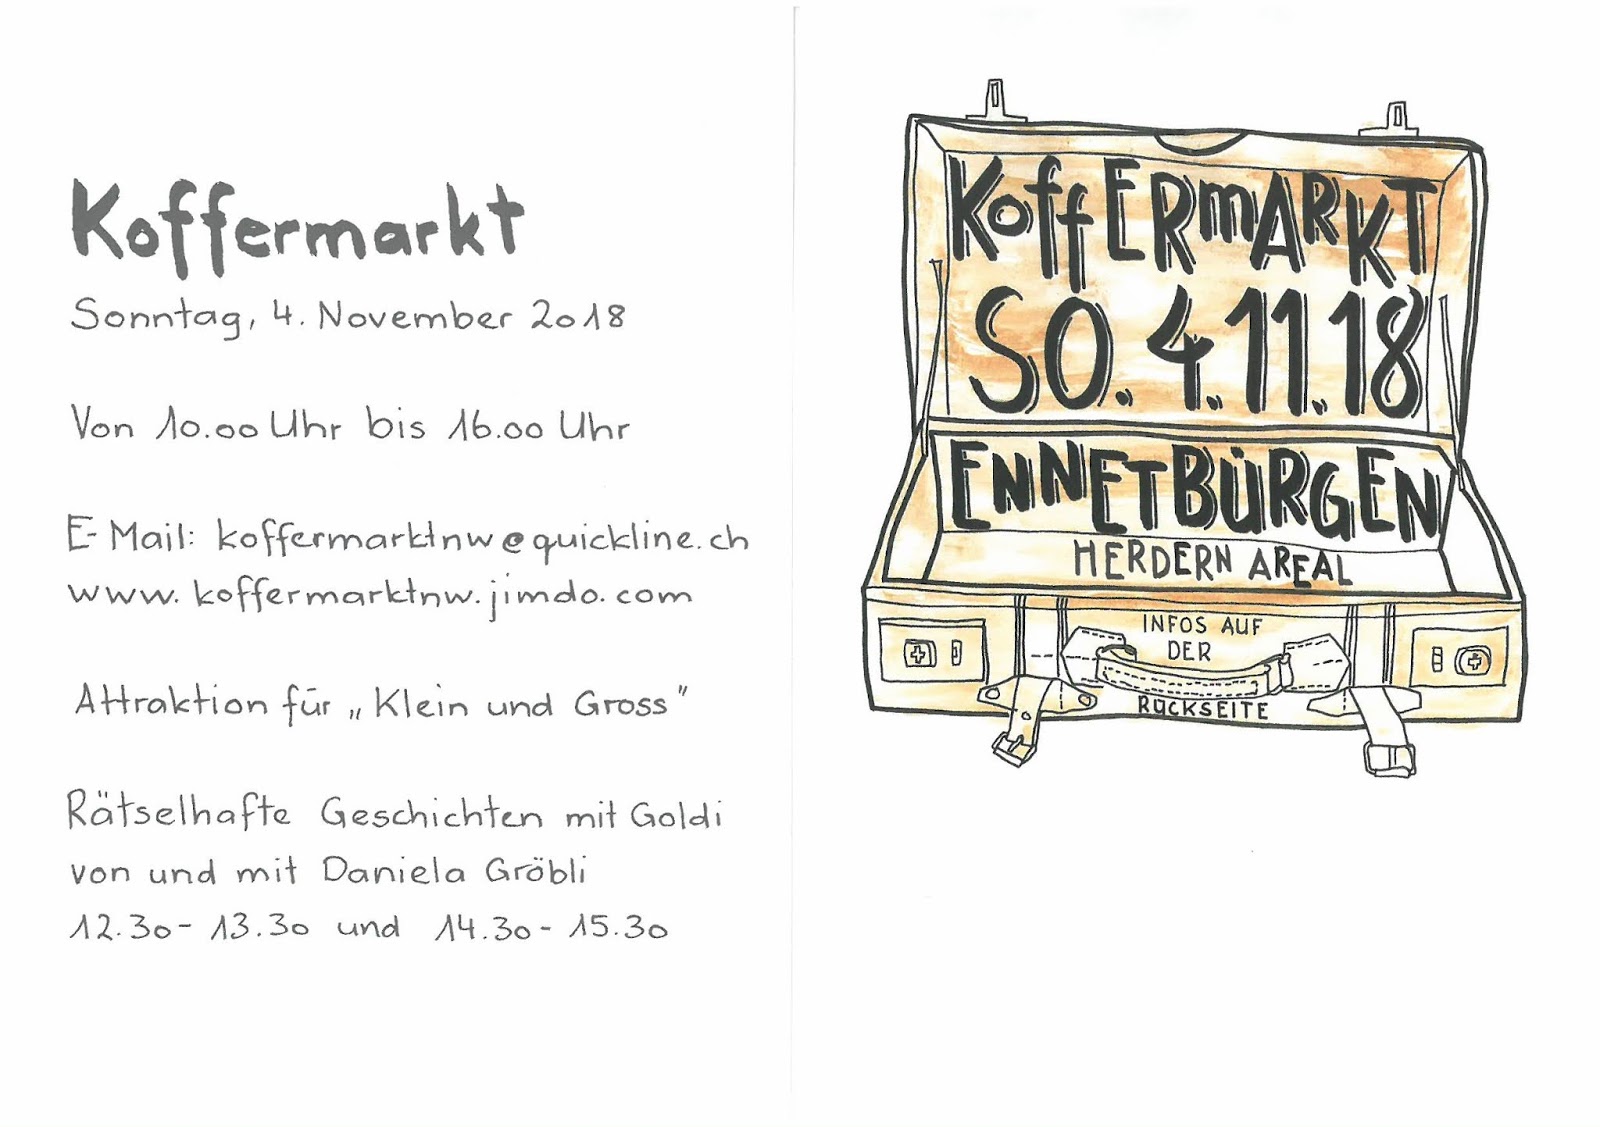 Koffermarkt
Sonntag, 4. November 2018
Von 10.00 Uhr bis 16.00 Uhr
E-Mail: koffermarktnw@quickline.ch
www.koffermarktnw.jimdo.com
Attraktion für „Klein und Gross"
Rätselhafte Geschichten mit Goldi
von und mit Daniela Gröbli
12.30 - 13.30 und 14.30 - 15.30
KoffERmARKT
SO. 4.11.18
ENNETBÜRGEN
HERDERN AREAL
INFOS AUF
DER
RÜCKSEITE